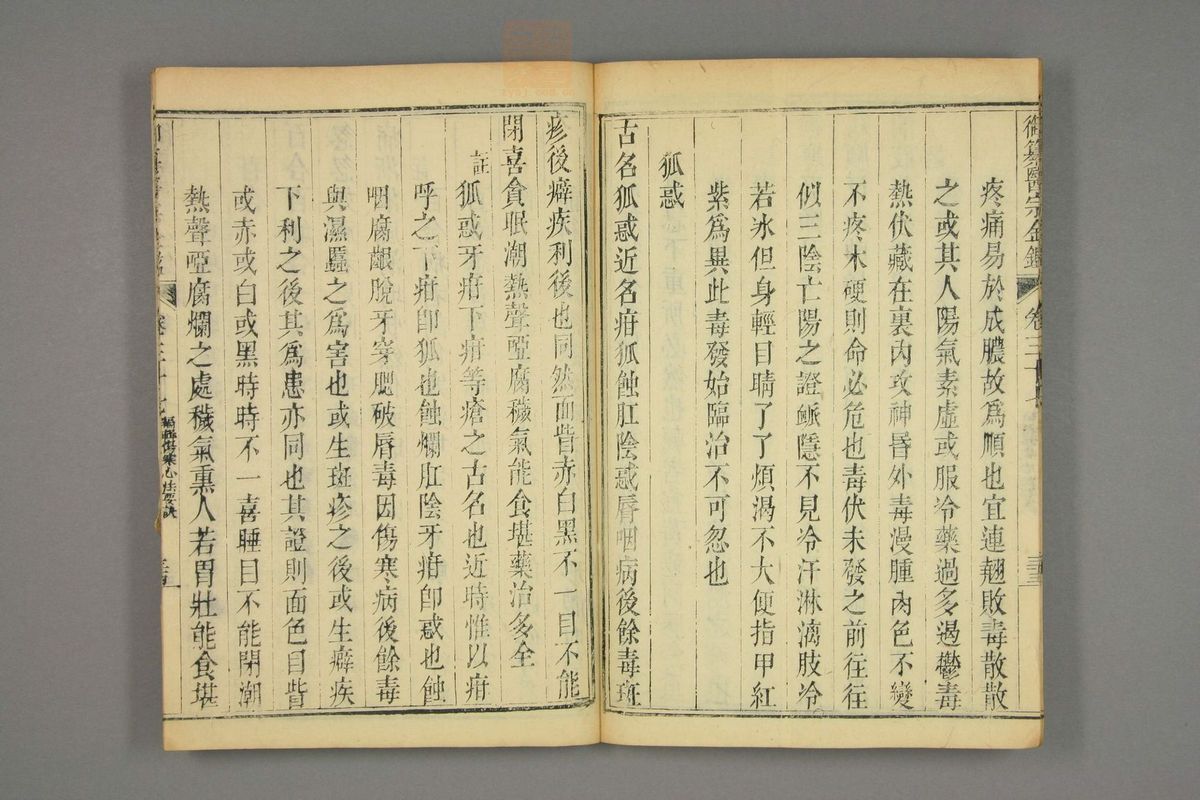 御纂醫宗金鑑 卷三十七
疼痛易於成膿故爲順也宜連翹敗毒散散
之或其人陽氣素虛或服冷藥過多遏鬱毒
熱伏藏在裏內攻神昏外毒漫腫肉色不變
不疼木硬則命必危也毒伏未發之前往往
似三陰亡陽之證脈隱不見冷汗淋漓肢冷
若冰但身輕目睛了了煩渴不大便指甲紅
紫爲異此毒發始臨治不可忽也
狐惑
古名狐惑近名疳狐蝕肛陰惑唇咽病後餘毒斑
疹後癖疾利後也同然面眥赤白黑不一目不能
閉喜食眠潮熱聲啞腐穢氣能食堪藥治多全
註 狐惑牙疳下疳等瘡之古名也近時惟以疳
呼之下疳卽狐也蝕爛肛陰牙疳卽惑也蝕
咽腐齦脫牙穿腮破唇毒因傷寒病後餘毒
與濕䘌之爲害也或生斑疹之後或生癖疾
下利之後其爲患亦同也其證則面色目眥
或赤或白或黑時時不一喜睡目不能閉潮
熱聲啞腐爛之處穢氣熏人若胃壯能食堪